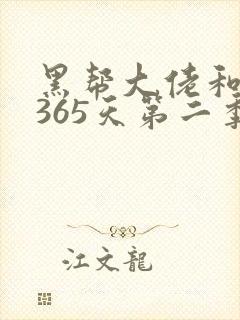 黑帮大佬和
365天第二季
江文龍